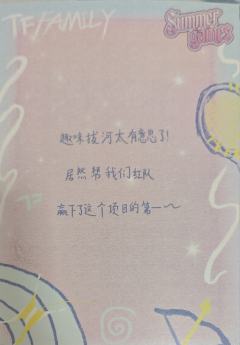 TF FAMILY
Summer games
趣味拔河太有意思了!
居然帮我们红队
赢下了这个项目的第一~